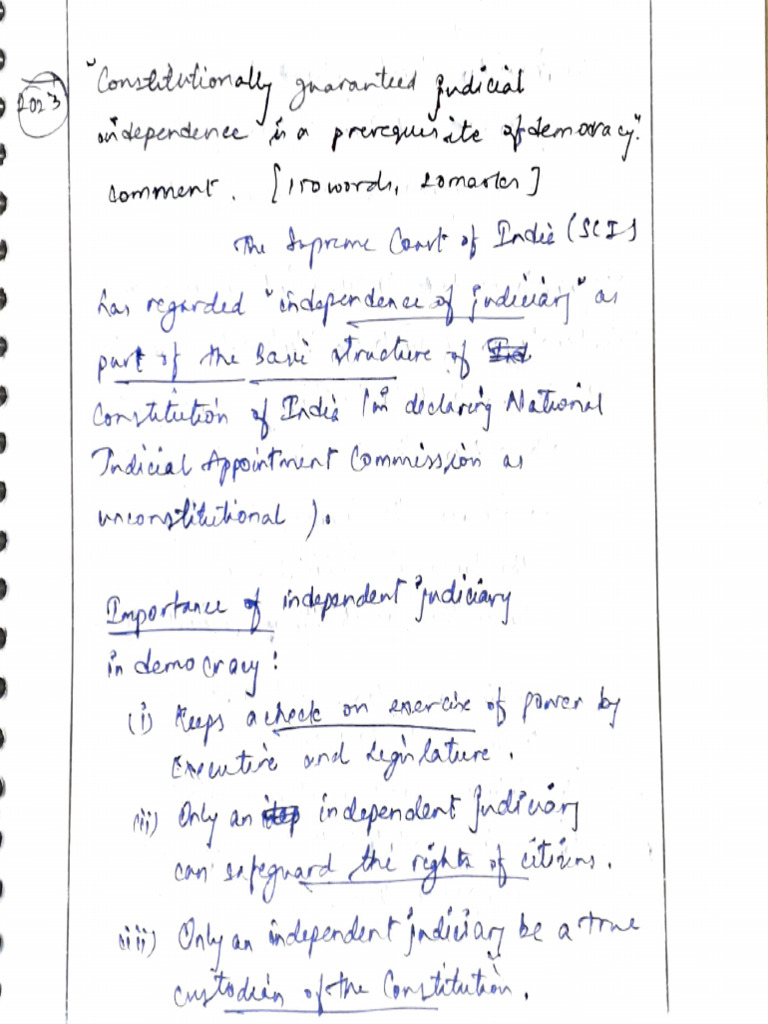 2023
"Constitutionally guaranteed judicial
independence is a prerequisite of democracy".
comment. [150words, 10marks]
The Supreme Court of India (SCI)
has regarded "independence of judiciary" as
part of the Basic structure of
Constitution of India (in declaring National
Judicial Appointment Commission as
unconstitutional ).
Importance of independent judiciary
in democracy:
(i) Keeps a check on exercise of power by
Executive and Legislature.
(ii) Only an independent judiciary
can safeguard the rights of citizens.
(iii) Only an independent judiciary be a true
custodian of the Constitution.